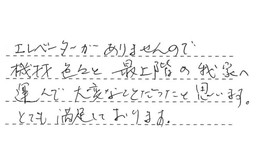 エレベーターがありませんので
機材色々と最上階の我家へ
運んで大変なことだったと思います。
とても満足しております。